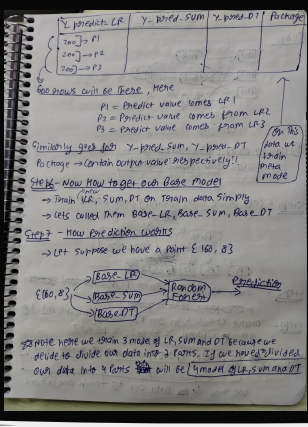 Y_predict-LR | Y_pred-SVM | Y_pred-DT | Package
200 → P1
200 → P2
200 → P3
600 rows will be there, Here
P1 = Predict value comes LR1
P2 = Predict value comes from LR2
P3 = Predict value comes from LR3
Similarly goes for Y_pred-SVM, Y_pred-DT
Package → Contain output value respectively!!
On this
data we
train
meta
mode
Step6 - Now How to get our Base model
→ Train LR, SVM, DT on Train data simply
new
→ Lets called Them Base-LR, Base_SVM, Base_DT
Step7 - How Prediction works
→ Let suppose we have a point {160, 8}
Base_LR
{160,8} Base_SVM Random Forest Prediction
Base_DT
Note here we train 3 model of LR, SVM and DT because we
decide to divide our data into 3 Parts. If we had divided
our data into 4 parts will be 4 model of LR, SVM and DT